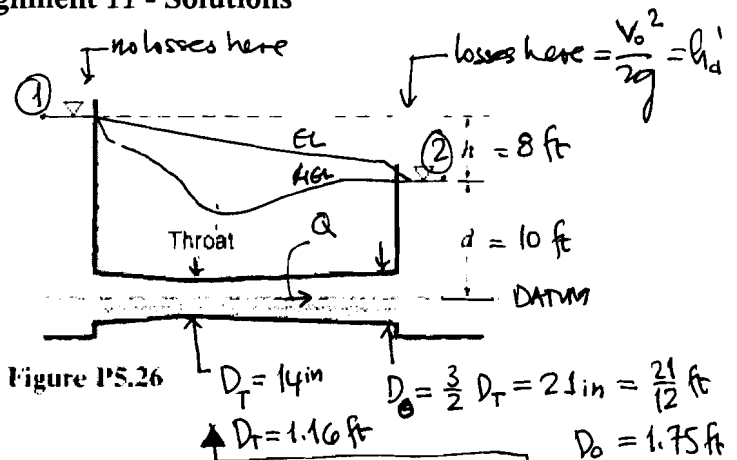 gnment 11 - Solutions
no losses here
losses here = V₀²/2g = h'd
① EL ② h = 8 ft
HEL
Throat Q d = 10 ft
DATUM
Figure P5.26 D_T = 14 in D₀ = 3/2 D_T = 21 in = 21/12 ft
D_T = 1.16 ft D₀ = 1.75 ft